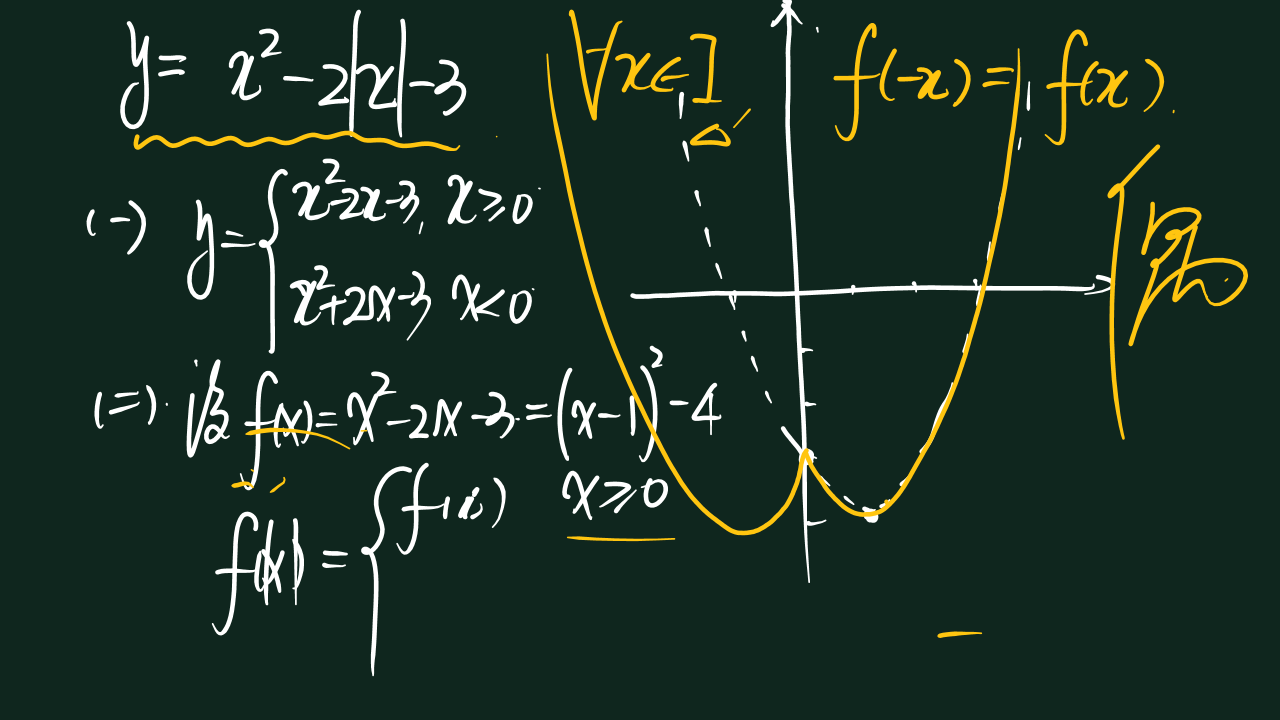 y = x² - 2|x| - 3
(一) y = { x² - 2x - 3, x ≥ 0
x² + 2x - 3 x < 0
(二). 设 f(x) = x² - 2x - 3 = (x - 1)² - 4
f(|x|) = { f(x) x ≥ 0
∀x∈I f(-x) = f(x).
偶